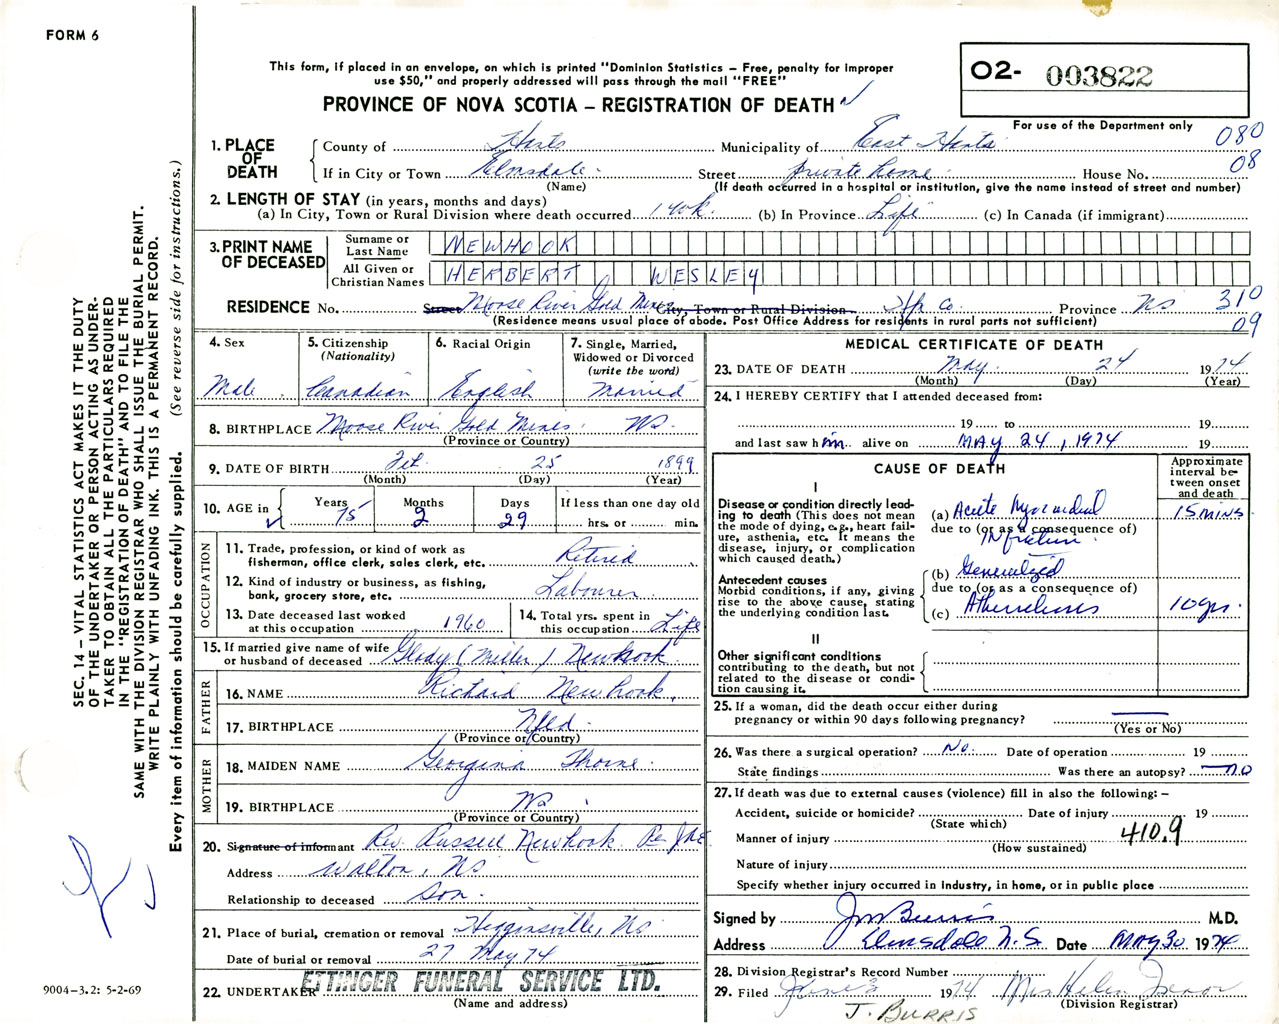 FORM 6
This form, if placed in an envelope, on which is printed "Dominion Statistics – Free, penalty for improper
use $50," and properly addressed will pass through the mail "FREE"
PROVINCE OF NOVA SCOTIA – REGISTRATION OF DEATH
02- 003822
For use of the Department only
080
08
1. PLACE OF DEATH
County of Hants Municipality of East Hants
If in City or Town Elmsdale Street private home House No.
(Name) (If death occurred in a hospital or institution, give the name instead of street and number)
2. LENGTH OF STAY (in years, months and days)
(a) In City, Town or Rural Division where death occurred 1 wk. (b) In Province Life (c) In Canada (if immigrant)
3. PRINT NAME OF DECEASED
Surname or Last Name NEWHOOK
All Given or Christian Names HERBERT WESLEY
RESIDENCE No. Street Moose River Gold Mines City, Town or Rural Division Hfx Co. Province NS 310
(Residence means usual place of abode. Post Office Address for residents in rural parts not sufficient) 09
4. Sex Male
5. Citizenship (Nationality) Canadian
6. Racial Origin English
7. Single, Married, Widowed or Divorced (write the word) Married
8. BIRTHPLACE Moose River Gold Mines NS
(Province or Country)
9. DATE OF BIRTH Feb. 25 1899
(Month) (Day) (Year)
10. AGE in Years 75 Months 2 Days 29 If less than one day old hrs. or min.
OCCUPATION
11. Trade, profession, or kind of work as fisherman, office clerk, sales clerk, etc. Retired
12. Kind of industry or business, as fishing, bank, grocery store, etc. Labourer
13. Date deceased last worked at this occupation 1960
14. Total yrs. spent in this occupation Life
15. If married give name of wife or husband of deceased Glady (Miller) Newhook
FATHER
16. NAME Richard Newhook
17. BIRTHPLACE Nfld.
(Province or Country)
MOTHER
18. MAIDEN NAME Georgina Thorne
19. BIRTHPLACE NS
(Province or Country)
20. Signature of informant Rev. Russell Newhook
Address Walton, NS
Relationship to deceased Son
21. Place of burial, cremation or removal Higginsville, NS
Date of burial or removal 27 May 74
22. UNDERTAKER ETTINGER FUNERAL SERVICE LTD.
(Name and address)
MEDICAL CERTIFICATE OF DEATH
23. DATE OF DEATH May 24 1974
(Month) (Day) (Year)
24. I HEREBY CERTIFY that I attended deceased from:
19 to 19
and last saw him alive on MAY 24, 1974 19
CAUSE OF DEATH
Approximate interval between onset and death
I
Disease or condition directly leading to death (This does not mean the mode of dying, e.g., heart failure, asthenia, etc. It means the disease, injury, or complication which caused death.)
(a) Acute Myocardial 15 mins
due to (or as a consequence of)
Infarction
Antecedent causes
Morbid conditions, if any, giving rise to the above cause, stating the underlying condition last.
(b) Generalized
due to (or as a consequence of)
(c) 10 yrs.
II
Other significant conditions
contributing to the death, but not related to the disease or condition causing it.
25. If a woman, did the death occur either during
pregnancy or within 90 days following pregnancy?
(Yes or No)
26. Was there a surgical operation? No. Date of operation 19
State findings Was there an autopsy? no
27. If death was due to external causes (violence) fill in also the following: –
Accident, suicide or homicide? Date of injury 19
(State which)
Manner of injury 410.9
(How sustained)
Nature of injury
Specify whether injury occurred in industry, in home, or in public place
Signed by JM Burris M.D.
Address Elmsdale N.S. Date May 30 1974
28. Division Registrar's Record Number
29. Filed June 3 1974 Mrs Helen
(Division Registrar)
J. BURRIS
SEC. 14 – VITAL STATISTICS ACT MAKES IT THE DUTY
OF THE UNDERTAKER OR PERSON ACTING AS UNDER-
TAKER TO OBTAIN ALL THE PARTICULARS REQUIRED
IN THE "REGISTRATION OF DEATH" AND TO FILE THE
SAME WITH THE DIVISION REGISTRAR WHO SHALL ISSUE THE BURIAL PERMIT.
WRITE PLAINLY WITH UNFADING INK. THIS IS A PERMANENT RECORD.
Every item of information should be carefully supplied. (See reverse side for instructions.)
9004–3.2: 5-2-69